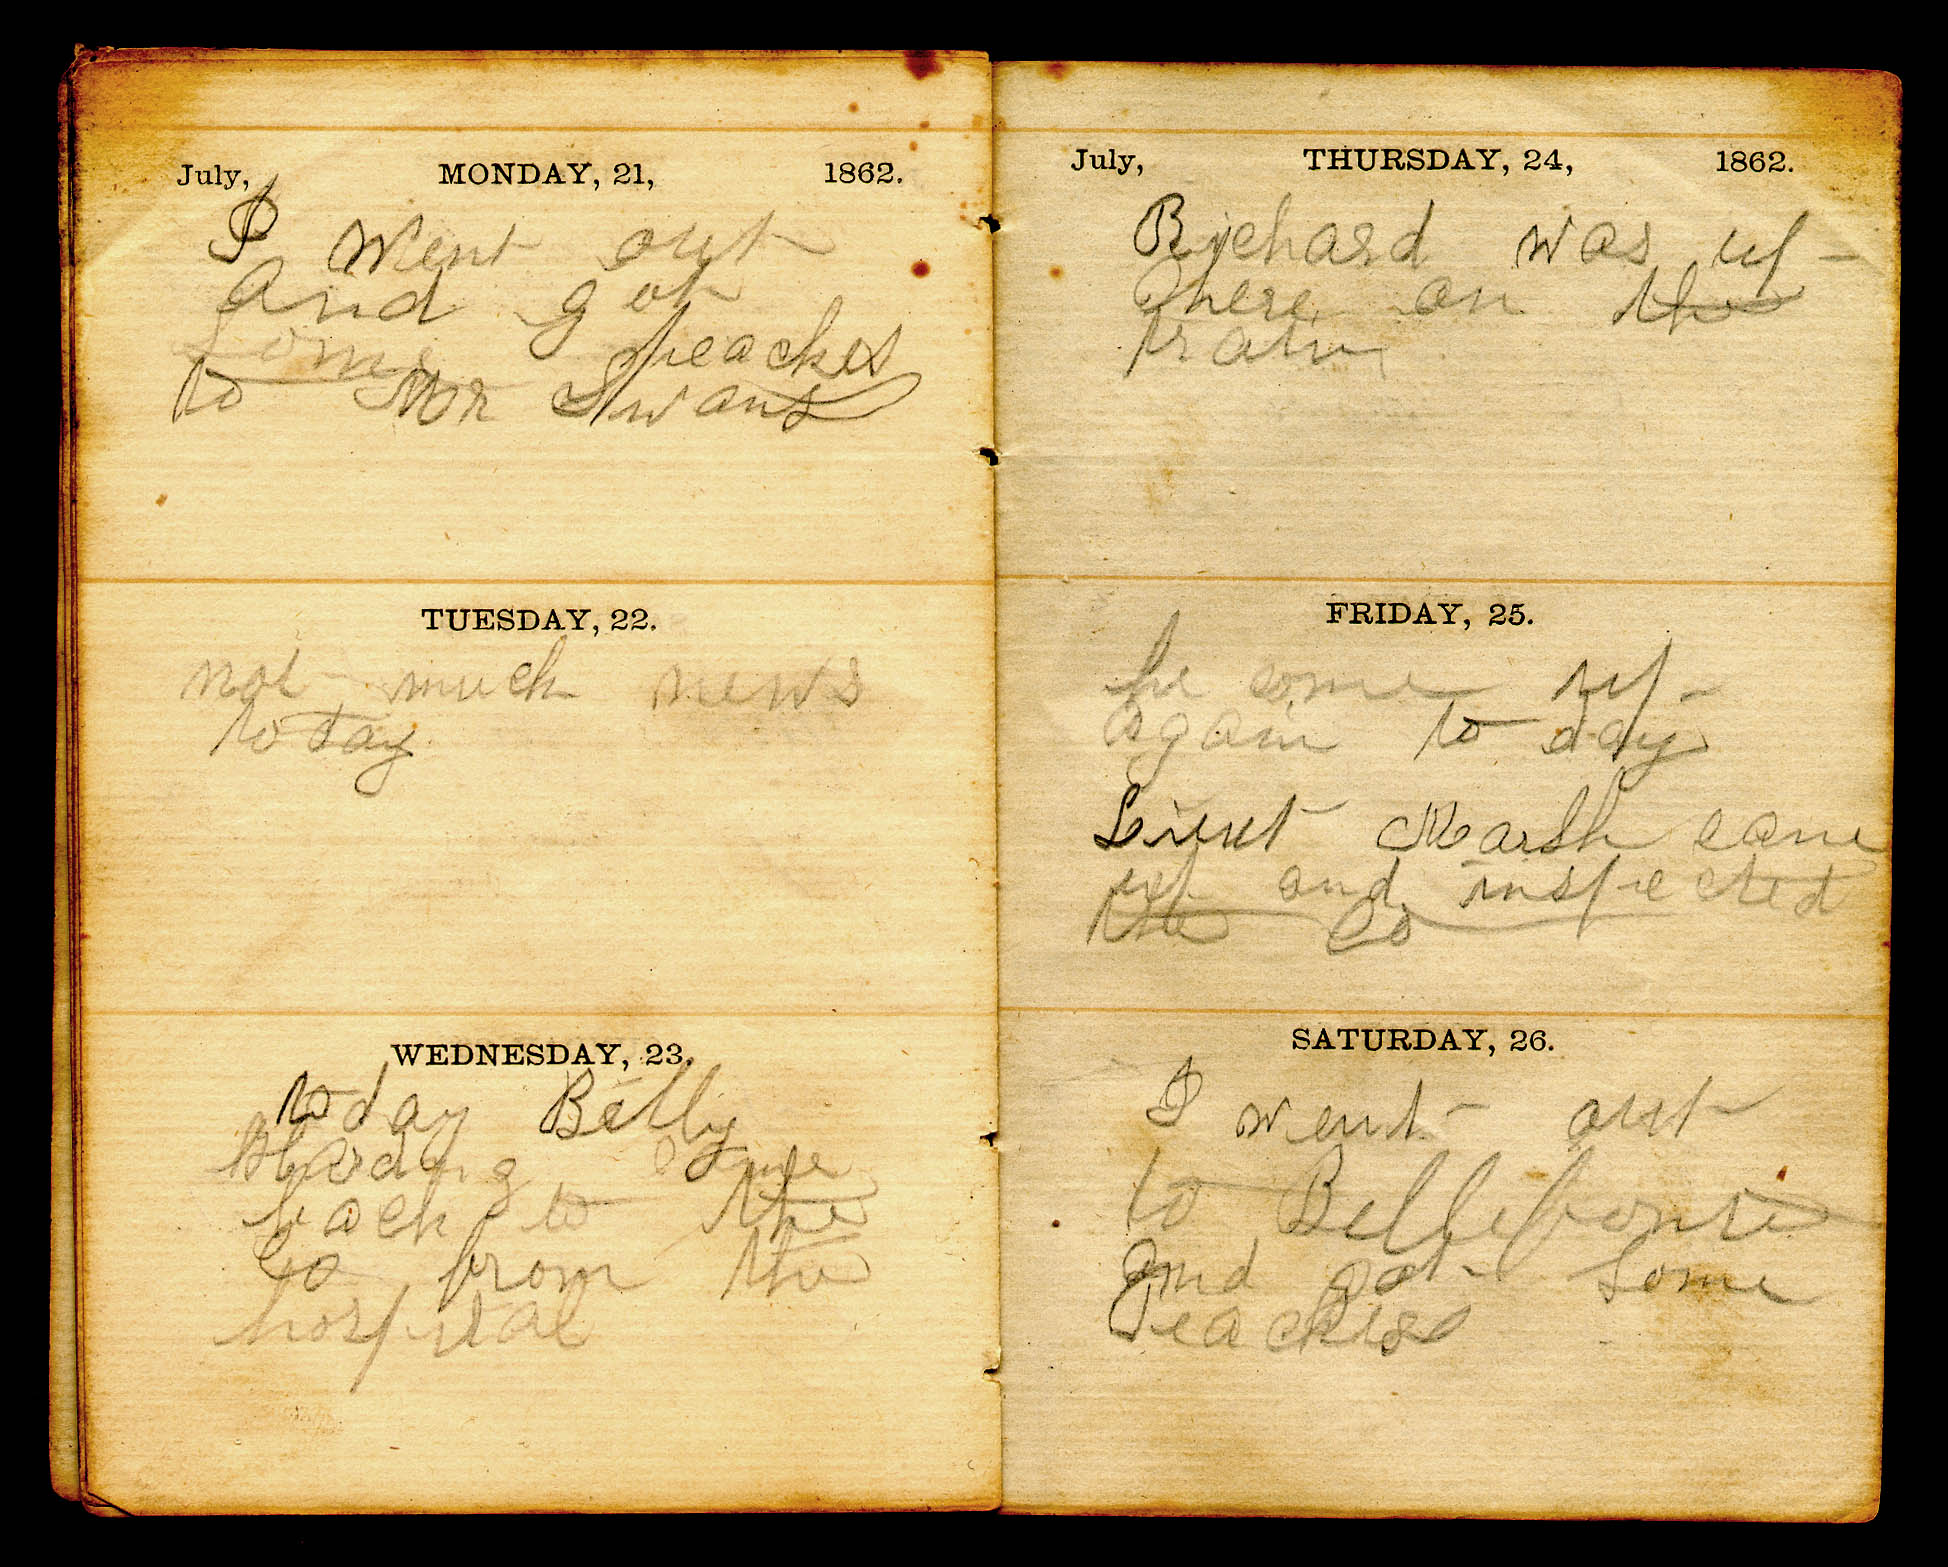 July, MONDAY, 21, 1862.
I went out
and got
some peaches
to Mr Swans
TUESDAY, 22.
not much news
today
WEDNESDAY, 23.
today Billy
came
back to the
Co from the
hospital
July, THURSDAY, 24, 1862.
Richard was up
here on the
train
FRIDAY, 25.
he come up
again to day
Lieut Marsh came
up and inspected
the Co
SATURDAY, 26.
I went out
to
and got some
Peaches